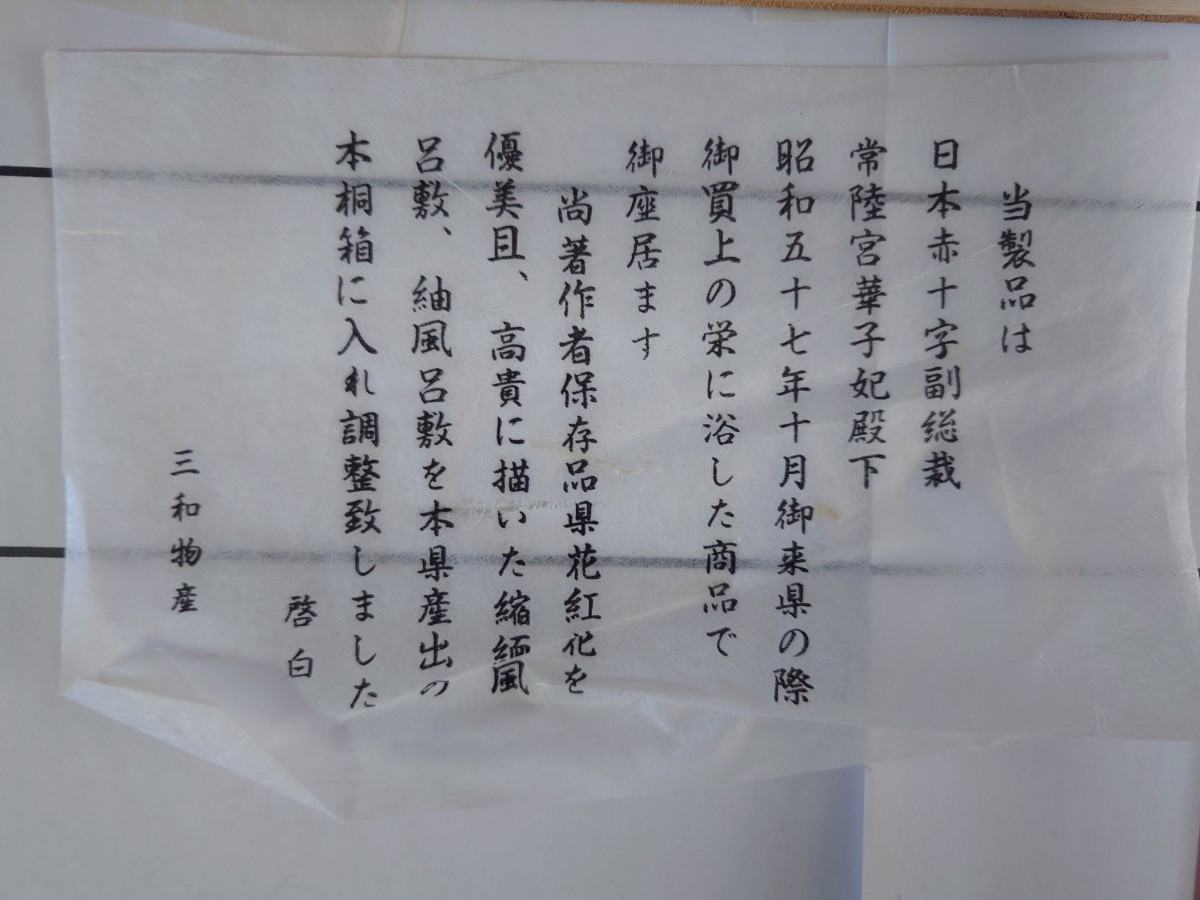 当製品は
日本赤十字副総裁
常陸宮華子妃殿下
昭和五十七年十月御来県の際
御買上の栄に浴した商品で
御座居ます
尚著作者保存品県花紅花を
優美且、高貴に描いた縮緬風
呂敷、紬風呂敷を本県産出の
本桐箱に入れ調整致しました
啓白
三和物産